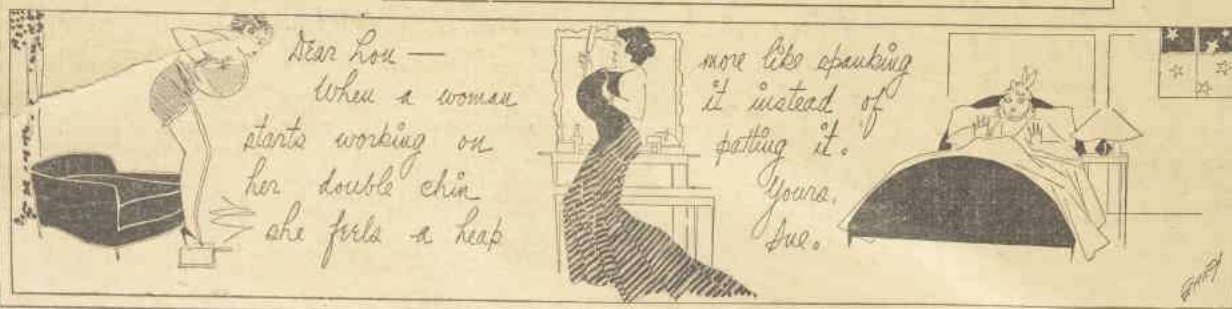 Dear Lou —
When a woman
starts working on
her double chin
she feels a heap
more like spanking
it instead of
patting it.
Yours,
Sue.